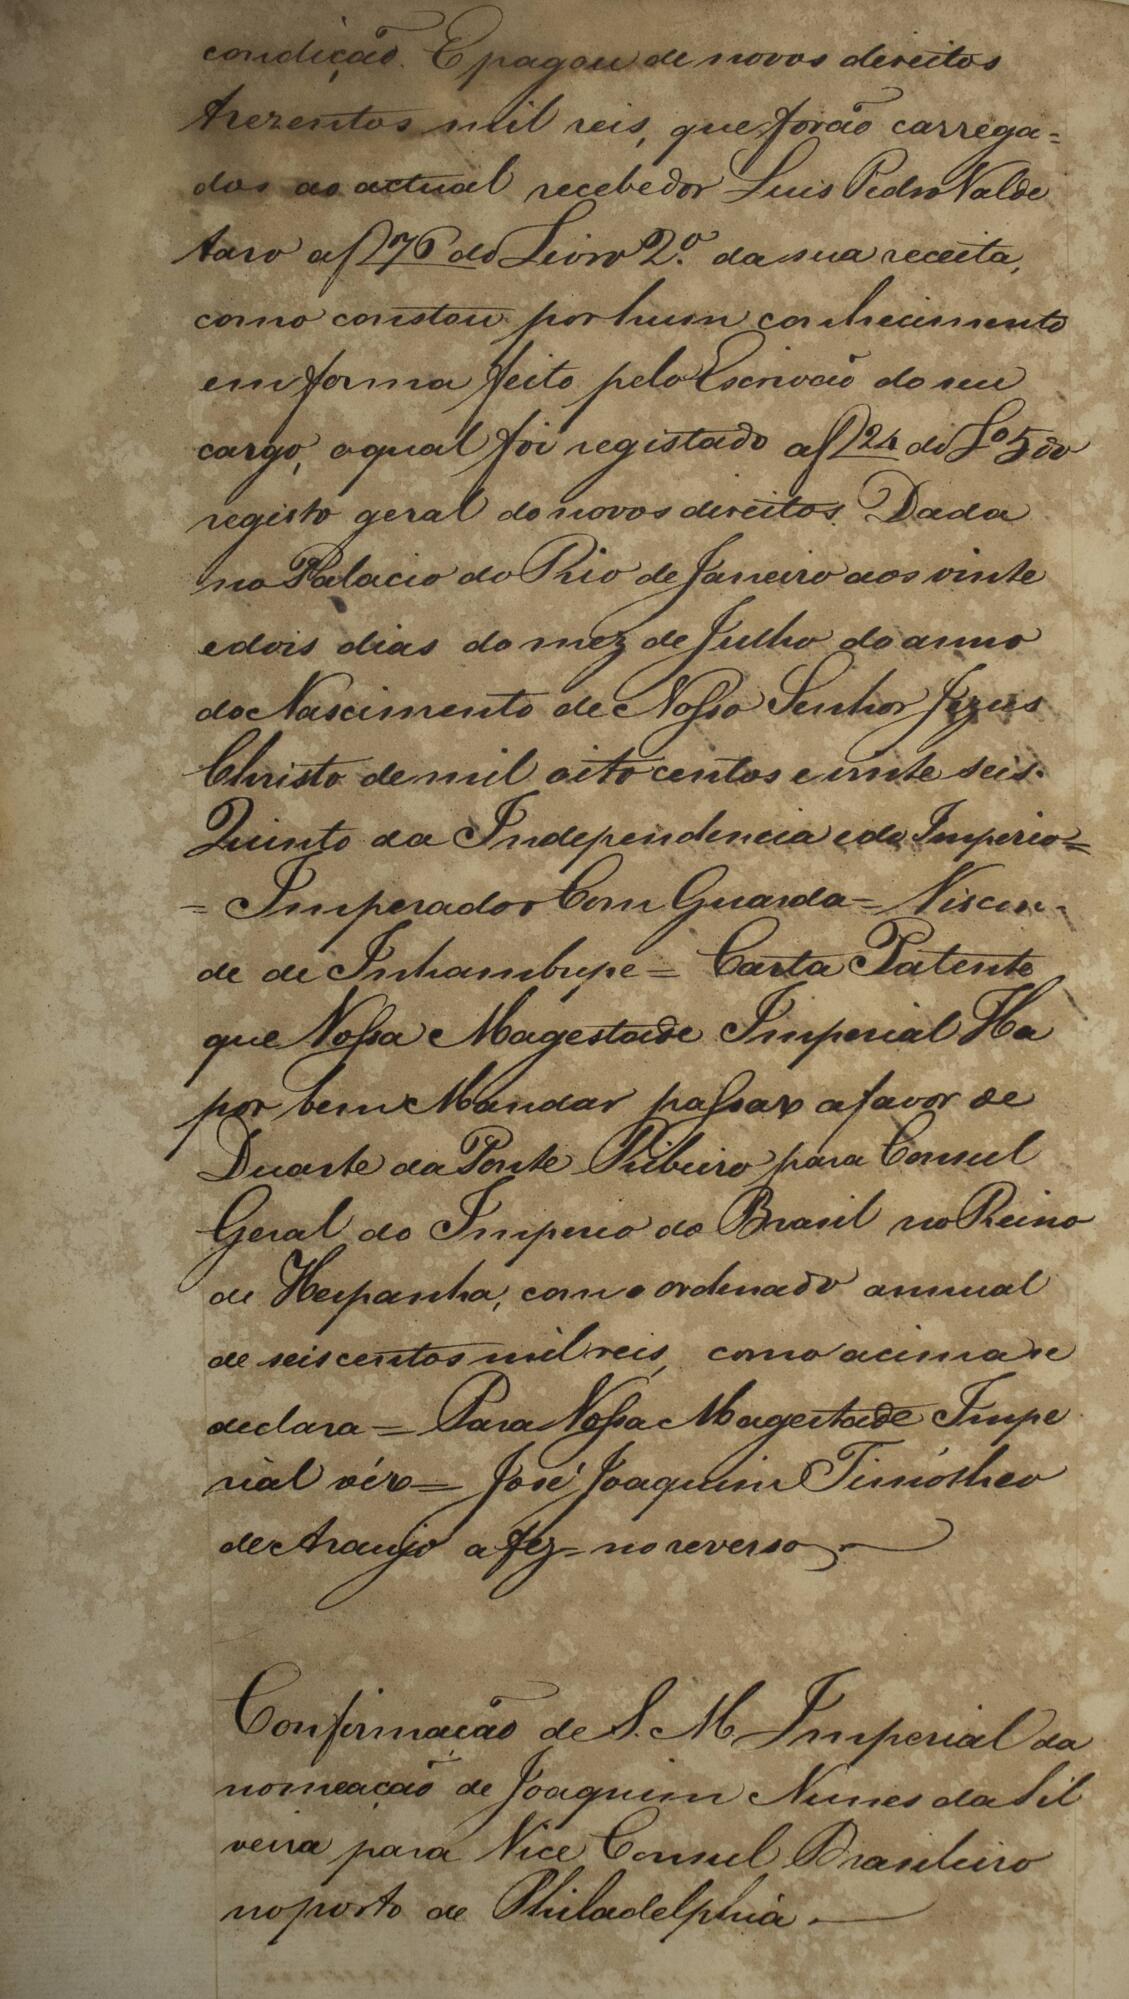 condição. E pagou de novos direitos
trezentos mil reis, que forão carrega=
dos ao actual recebedor Luis Pedro Valde
taro a f 276 do Livro 2.º da sua receita,
como constou por hum conhecimento
em forma feito pelo Escrivão do seu
cargo, o qual foi registado a f 24 do Lº 5 do
registo geral do novos direitos. Dada
no Palacio do Rio de Janeiro aos vinte
e dois dias do mez de Julho do anno
do Nascimento de Nosso Senhor Jezus
Christo de mil oito centos e vinte seis.
Quinto da Independencia e do Imperio=
= Imperador Com Guarda = Viscon-
de de Inhambupe = Carta Patente
que Vossa Magestade Imperial Ha
por bem Mandar passar a favor de
Duarte da Ponte Ribeiro para Consul
Geral do Imperio do Brasil no Reino
de Hespanha, com o ordenado annual
de seis centos mil reis, como acima se
declara = Para Vossa Magestade Impe
rial vêr = José Joaquim Timótheo
de Araujo a fez = no reverso.
Confirmação de S. M. Imperial da
nomeação de Joaquim Nunes da Sil
veira para Vice Consul Brasileiro
no porto de Philadelphia.